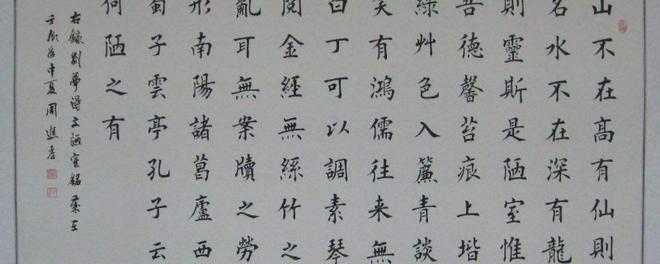 山不在高有仙則
名水不在深有龍
則靈斯是陋室惟
吾德馨苔痕上堦
綠艸色入簾青談
笑有鴻儒往来無
白丁可以調素琴
閱金經無絲竹之
亂耳無案牘之勞
形南陽諸葛廬西
蜀子雲亭孔子云
何陋之有
右錄劉夢得文陋室銘歲在
壬辰年中夏周進